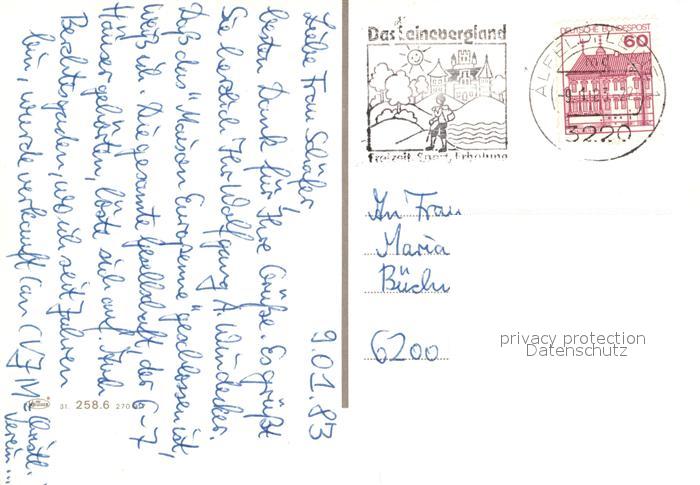 9.01.83
Liebe Frau Schäfer,
besten Dank für Ihre Grüße. Es grüßt
Sie herzlich Ihr Wolfgang A. Wunderker.
Daß das "Maison Européenne" geschlossen ist,
weiß ich. Die gesamte Gesellschaft, der 6-7
Häuser gehörten, löste sich auf. Auch
Berchtsgaden, wo ich seit Jahren
bin, wurde verkauft (an CVJM = Christl.
Verein...
31. 258.6 270
Das Leinebergland
Freizeit, Sport, Erholung
ALFELD
-9.1.83
3220
DEUTSCHE BUNDESPOST
60
An Frau
Maria
Büchi
6200
privacy protection
Datenschutz